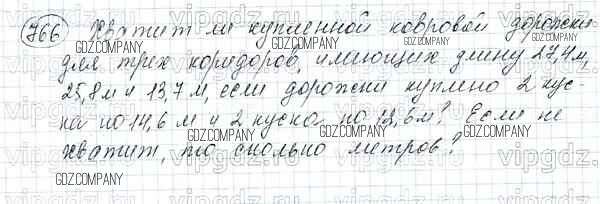 766 Хватит ли купленной ковровой дорожки
GDZ.COMPANY GDZ.COMPANY GDZ.COMPANY
для трех коридоров, имеющих длину 27,4 м,
25,8 м и 13,7 м, если дорожки куплено 2 кус-
GDZ.COMPANY GDZ.COMPANY GDZ.COMPANY
ка по 14,6 м и 2 куска по 12,6 м? Если не
хватит, то сколько метров?
GDZ.COMPANY GDZ.COMPANY GDZ.COMPANY
vipgdz